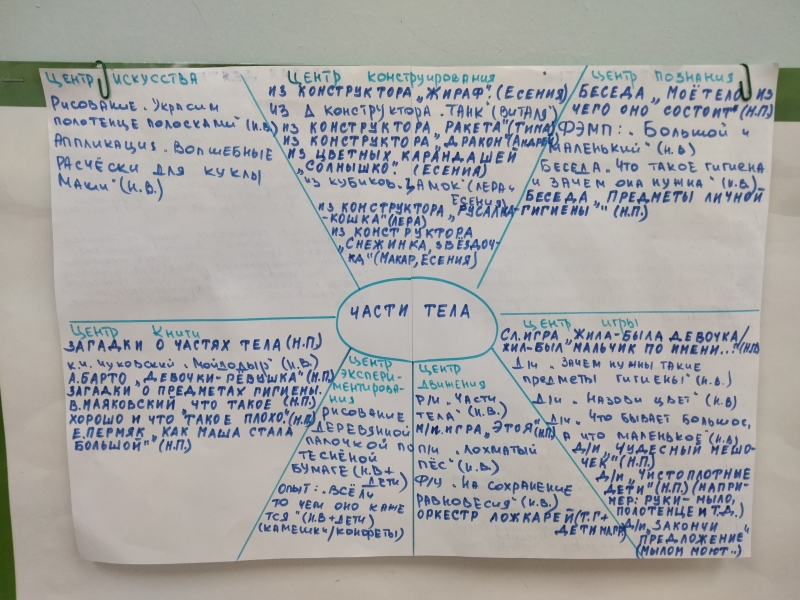 ЦЕНТР ИСКУССТВА
Рисование „Украсим
полотенце полосками" (Н.В)
Аппликация „Волшебные
расчёски для куклы
Маши" (Н.В.)
ЦЕНТР КОНСТРУИРОВАНИЯ
ИЗ КОНСТРУКТОРА „ЖИРАФ" (ЕСЕНИЯ)
ИЗ Д КОНСТРУКТОРА „ТАНК" (ВИТАЛЯ)
ИЗ КОНСТРУКТОРА „РАКЕТА" (ТИМА)
ИЗ КОНСТРУКТОРА „ДРАКОН" (АНДРЕЙ)
ИЗ ЦВЕТНЫХ КАРАНДАШЕЙ
„СОЛНЫШКО" (ЕСЕНИЯ)
ИЗ КУБИКОВ „ЗАМОК" (ЛЕРА и
ЕСЕНИЯ)
ИЗ КОНСТРУКТОРА „РУСАЛКА-
КОШКА" (ЛЕРА)
ИЗ КОНСТРУКТОРА
„СНЕЖИНКА, ЗВЁЗДОЧ-
КА" (МАКАР, ЕСЕНИЯ)
ЦЕНТР ПОЗНАНИЯ
БЕСЕДА „МОЁ ТЕЛО ИЗ
ЧЕГО ОНО СОСТОИТ" (Н.П)
ФЭМП: „Большой и
маленький" (Н.В)
Беседа „Что такое гигиена
и зачем она нужна" (Н.В.)
БЕСЕДА „ПРЕДМЕТЫ ЛИЧНОЙ
ГИГИЕНЫ" (Н.П.)
ЧАСТИ ТЕЛА
ЦЕНТР КНИГИ
ЗАГАДКИ О ЧАСТЯХ ТЕЛА (Н.П)
К.И. Чуковский „Мойдодыр" (Н.В)
А.БАРТО „ДЕВОЧКИ-РЕВУШКА" (Н.П)
ЗАГАДКИ О ПРЕДМЕТАХ ГИГИЕНЫ.
В.МАЯКОВСКИЙ ЧТО ТАКОЕ (Н.П)
ХОРОШО И ЧТО ТАКОЕ ПЛОХО" (Н.П)
Е.ПЕРМЯК „КАК МАША СТАЛА
БОЛЬШОЙ" (Н.П.)
ЦЕНТР
ЭКСПЕРИ-
МЕНТИРОВА-
НИЯ
Рисование
деревянной
палочкой по
теснёной
бумаге (Н.В+
дети)
Опыт: „Всё ли
то чем оно каже
тся" (Н.В+дети)
(камешки/конфеты)
ЦЕНТР
ДВИЖЕНИЯ
Р/и „Части
тела" (Н.В.)
М/П.ИГРА „ЭТО Я" (Н.П)
П/и „Лохматый
пёс" (Н.В)
Ф/у „На сохранение
равновесия" (Н.В.)
ОРКЕСТР ЛОЖКАРЕЙ (Т.Г+
ДЕТИ
ЦЕНТР ИГРЫ
СЛ.ИГРА „ЖИЛА-БЫЛА ДЕВОЧКА/
ЖИЛ-БЫЛ МАЛЬЧИК ПО ИМЕНИ..." (Н.П)
Д/и „Зачем нужны такие
предметы гигиены" (Н.В.)
Д/и „Назови цвет" (Н.В)
Д/и „Что бывает большое,
а что маленькое" (Н.В)
Д/И „ЧУДЕСНЫЙ МЕШО-
ЧЕК" (Н.П)
Д/И „ЧИСТОПЛОТНЫЕ
ДЕТИ" (Н.П) (НАПРИ-
МЕР: РУКИ-МЫЛО,
ПОЛОТЕНЦЕ И Т.Д.)
Д/И „ЗАКОНЧИ
ПРЕДЛОЖЕНИЕ"
(МЫЛОМ МОЮТ..)